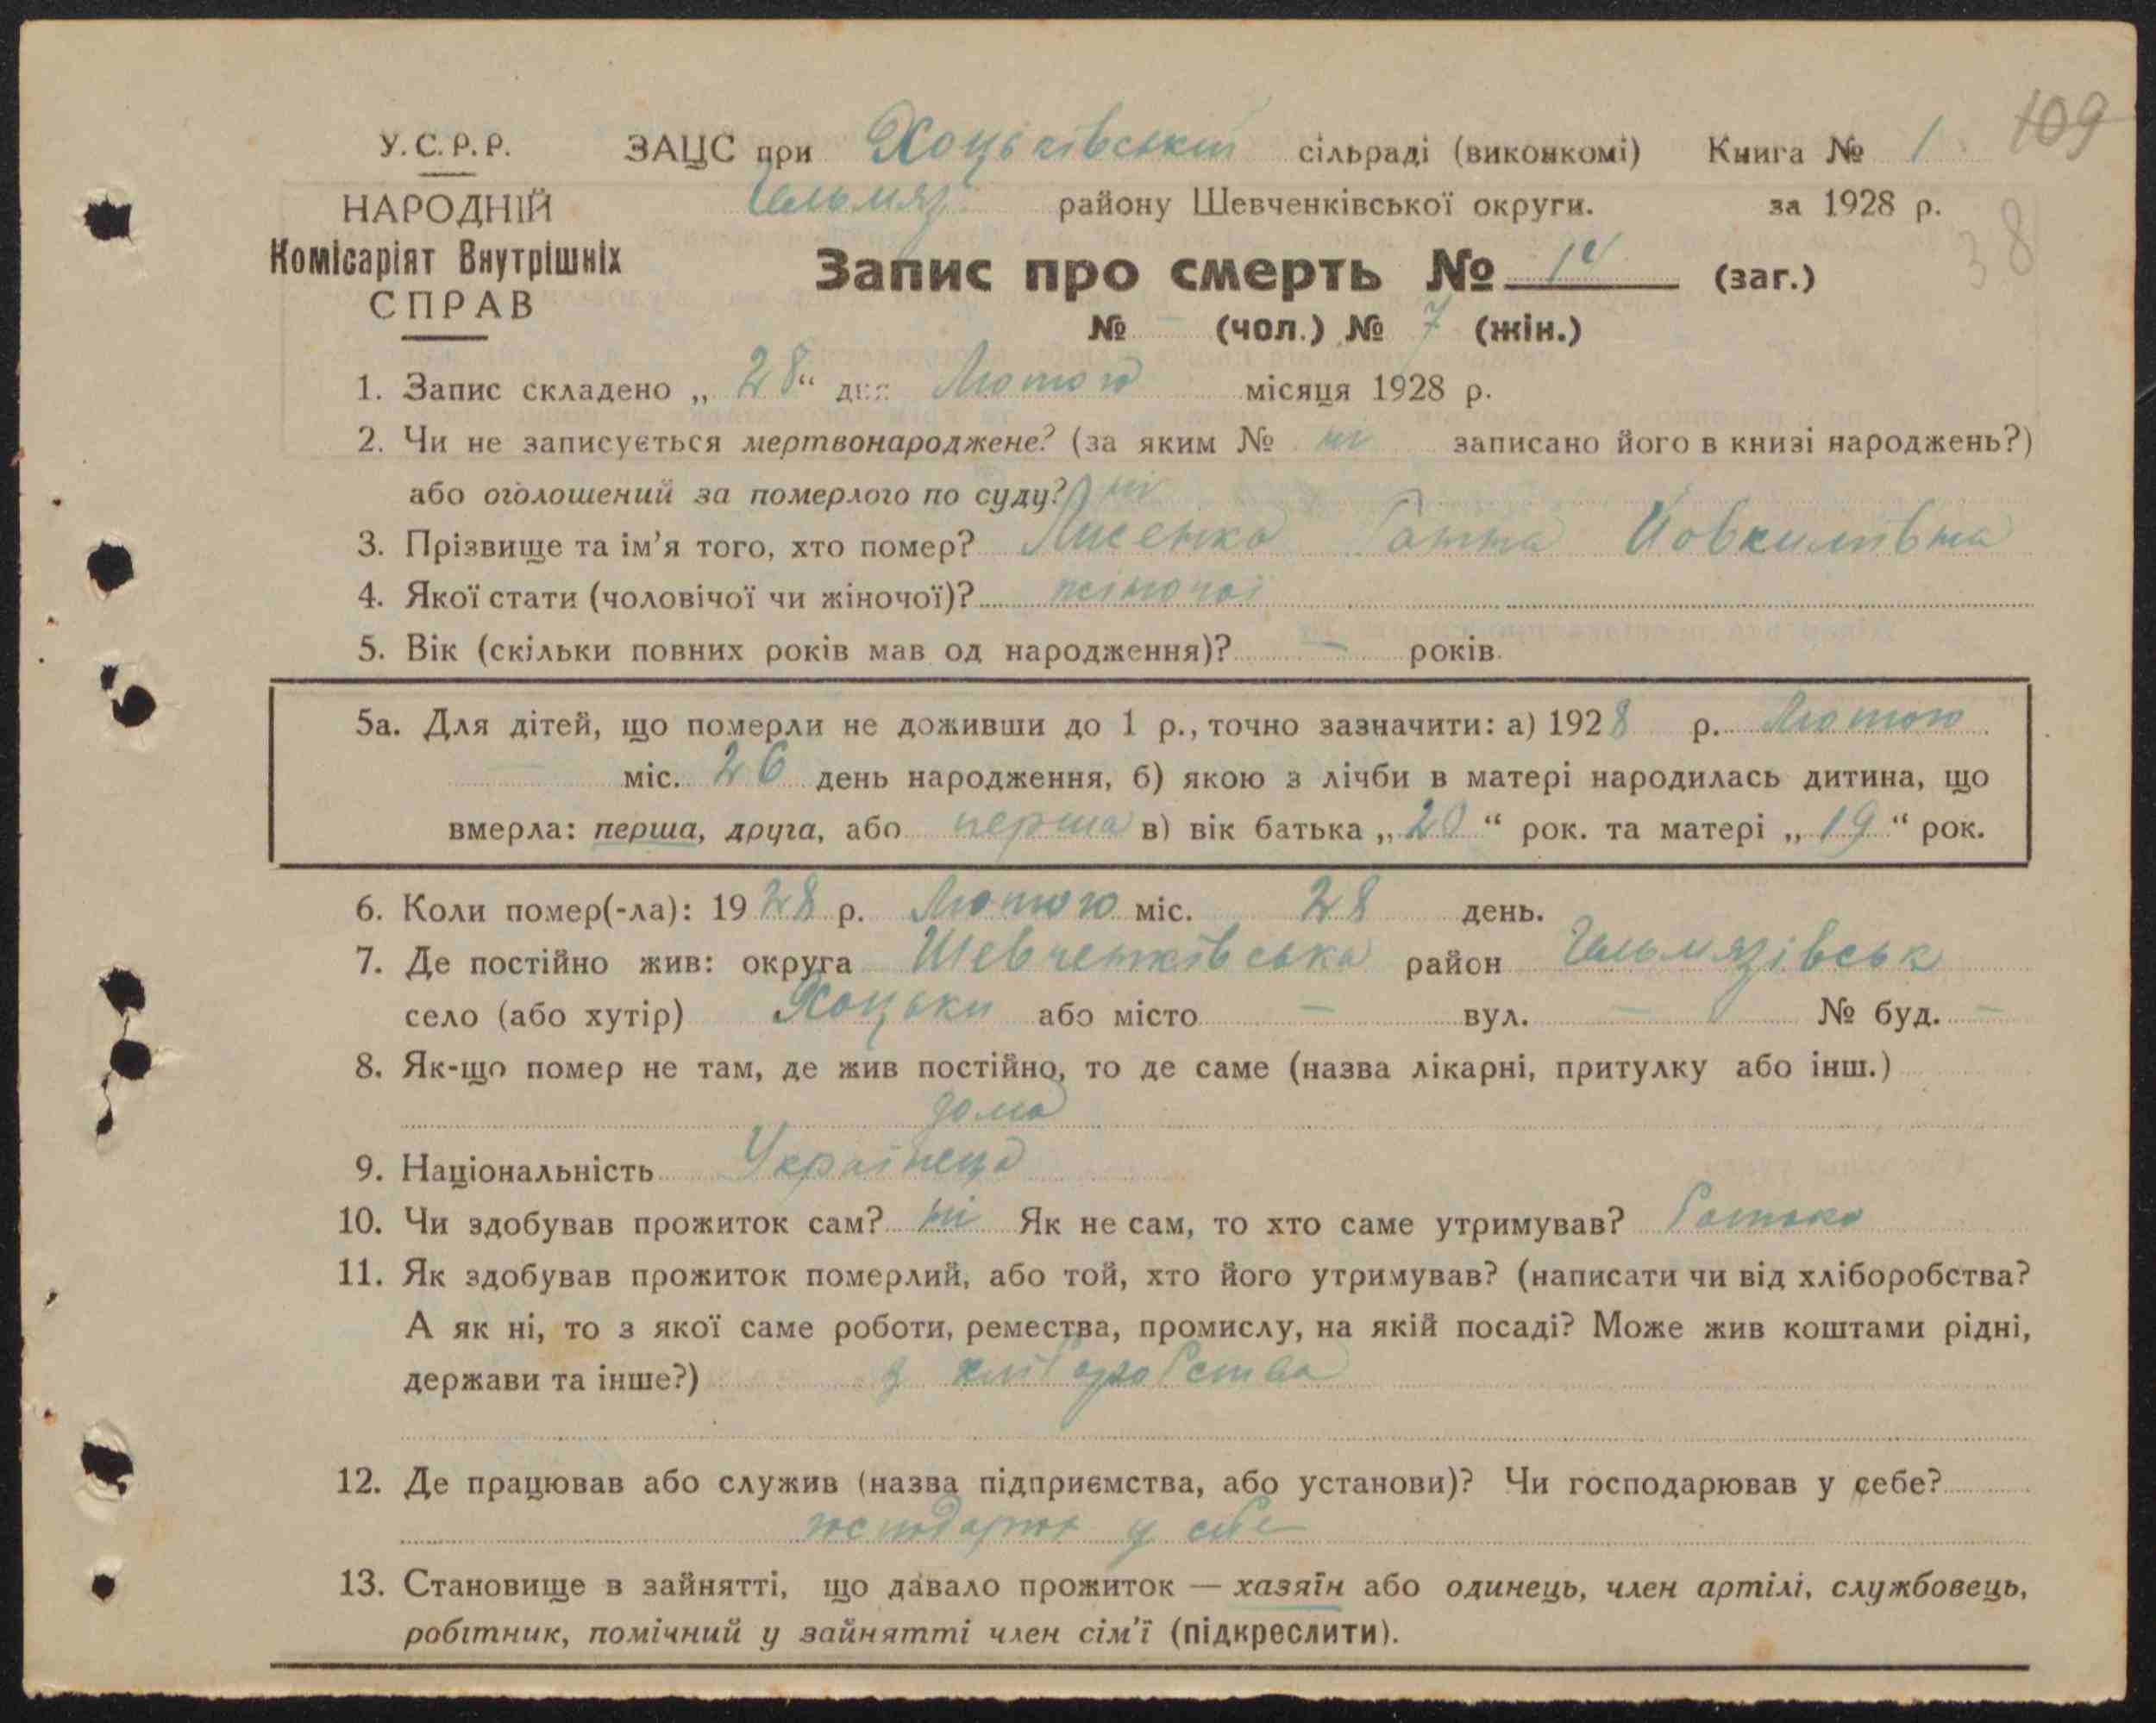 109
У.С.Р.Р. ЗАЦС при Хоцьківській сільраді (виконкомі) Книга № 1
НАРОДНІЙ Гельмяз. району Шевченківської округи. за 1928 р.
38
Комісаріят Внутрішніх
СПРАВ
Запис про смерть № 14 (заг.)
№ — (чол.) № 7 (жін.)
1. Запис складено „ 28 “ дня Лютого місяця 1928 р.
2. Чи не записується мертвонароджене? (за яким № ні записано його в книзі народжень?)
або оголошений за померлого по суду? ні
3. Прізвище та ім’я того, хто помер? Лисенко Ганна Йовхимівна
4. Якої стати (чоловічої чи жіночої)? жіночої
5. Вік (скільки повних років мав од народження)? — років.
5а. Для дітей, що померли не доживши до 1 р., точно зазначити: а) 1928 р. Лютого
— міс. 26 день народження, б) якою з лічби в матері народилась дитина, що
вмерла: перша, друга, або перша в) вік батька „ 20 “ рок. та матері „ 19 “ рок.
6. Коли помер(-ла): 1928 р. Лютого міс. 28 день.
7. Де постійно жив: округа Шевченківська район Гельмязівськ
село (або хутір) Хоцьки або місто — вул. — № буд. —
8. Як-що помер не там, де жив постійно, то де саме (назва лікарні, притулку або інш.)
дома
9. Національність Українець
10. Чи здобував прожиток сам? ні Як не сам, то хто саме утримував? батько
11. Як здобував прожиток померлий, або той, хто його утримував? (написати чи від хліборобства?
А як ні, то з якої саме роботи, ремества, промислу, на якій посаді? Може жив коштами рідні,
держави та інше?) з хліборобства
12. Де працював або служив (назва підприємства, або установи)? Чи господарював у себе?
у себе
13. Становище в зайнятті, що давало прожиток — хазяїн або одинець, член артілі, службовець,
робітник, помічний у зайнятті член сім’ї (підкреслити).